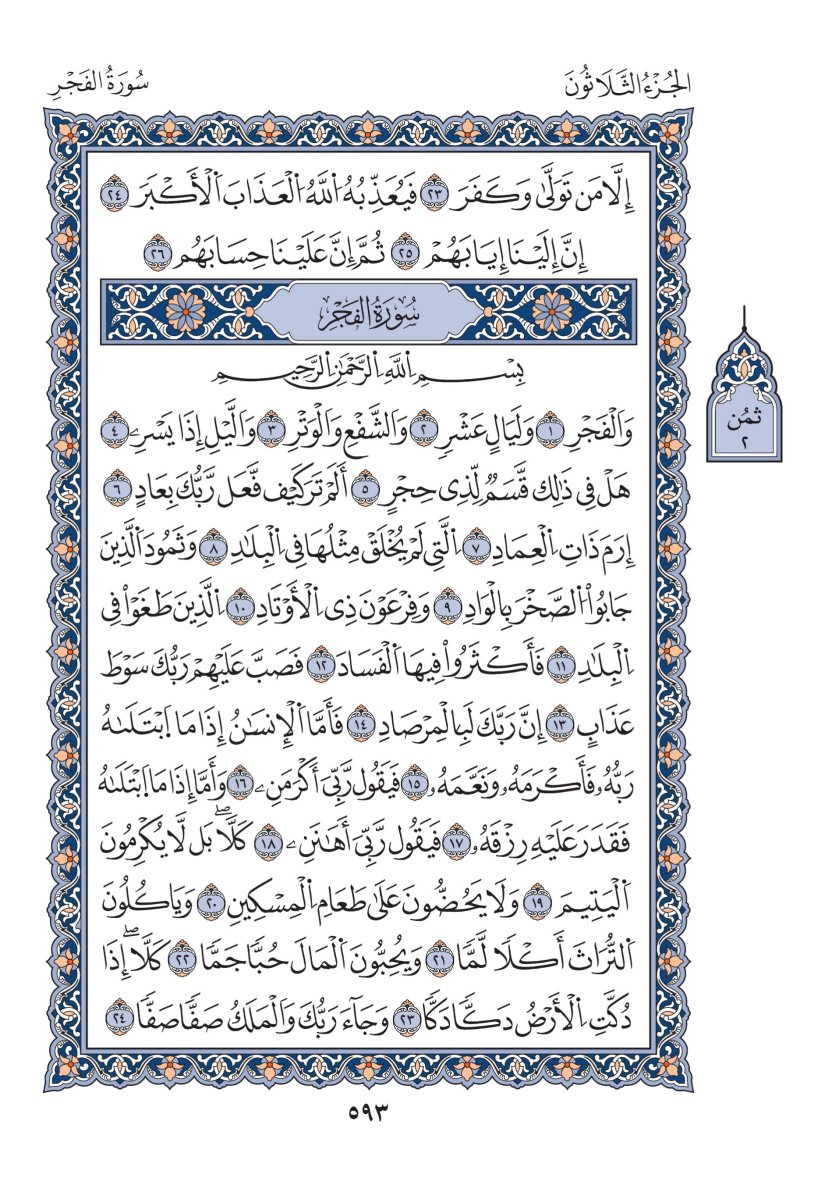 الجُزْءُ الثَّلَاثُونَ
سُورَةُ الفَجْرِ
إِلَّا مَن تَوَلَّىٰ وَكَفَرَ ٢٣ فَيُعَذِّبُهُ اُللَّهُ اُلْعَذَابَ اَلْأَكْبَرَ ٢٤
إِنَّ إِلَيْنَا إِيَابَهُمْ ٢٥ ثُمَّ إِنَّ عَلَيْنَا حِسَابَهُم ٢٦
سُورَةُ الفَجْرِ
بِسْمِ اِللَّهِ اِلرَّحْمَٰنِ اِلرَّحِيمِ
وَالْفَجْرِ ١ وَلَيَالٍ عَشْرٍ ٢ وَالشَّفْعِ وَالْوَتْرِ ٣ وَالَّيْلِ إِذَا يَسْرِۦ ٤
هَلْ فِى ذَٰلِك قَّسَمٌ لِّذِى حِجْرٍ ٥ أَلَمْ تَرَ كَيْف فَّعَل رَّبُّكَ بِعَادٍ ٦
إِرَمَ ذَاتِ اِلْعِمَادِ ٧ اِلَّتِى لَمْ يُخْلَقْ مِثْلُهَا فِى اِلْبِلَٰدِ ٨ وَثَمُودَ اَلَّذِينَ
جَابُواْ اُلصَّخْرَ بِالْوَادِ ٩ وَفِرْعَوْنَ ذِى اِلْأَوْتَادِ ١٠ اِلَّذِينَ طَغَوْاْ فِى
اِلْبِلَٰدِ ١١ فَأَكْثَرُواْ فِيهَا اَلْفَسَادَ ١٢ فَصَبَّ عَلَيْهِمْ رَبُّكَ سَوْطَ
عَذَابٍ ١٣ إِنَّ رَبَّكَ لَبِالْمِرْصَادِ ١٤ فَأَمَّا اَلْإِنسَٰنُ إِذَا مَا اَبْتَلَىٰهُ
رَبُّهُۥ فَأَكْرَمَهُۥ وَنَعَّمَهُۥ ١٥ فَيَقُول رَّبِّىَ أَكْرَمَنِۦ ١٦ وَأَمَّا إِذَا مَا اَبْتَلَىٰهُ
فَقَدَرَ عَلَيْهِ رِزْقَهُۥ ١٧ فَيَقُول رَّبِّىَ أَهَٰنَنِۦ ١٨ كَلَّاۖ بَل لَّا يُكْرِمُونَ
اَلْيَتِيمَ ١٩ وَلَا يَحُضُّونَ عَلَىٰ طَعَامِ اِلْمِسْكِينِ ٢٠ وَيَاكُلُونَ
اَلتُّرَاثَ أَكْلًا لَّمًّا ٢١ وَيُحِبُّونَ اَلْمَالَ حُبًّا جَمًّا ٢٢ كَلَّاۖ إِذَا
دُكَّتِ اِلْأَرْضُ دَكًّا دَكًّا ٢٣ وَجَآءَ رَبُّكَ وَالْمَلَكُ صَفًّا صَفًّا ٢٤
ثُمُن
٢
٥٩٣